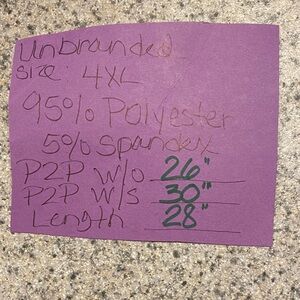 Unbranded
Size: 4XL
95% Polyester
5% Spandex
P2P w/o 26"
P2P w/s 30"
Length 28"